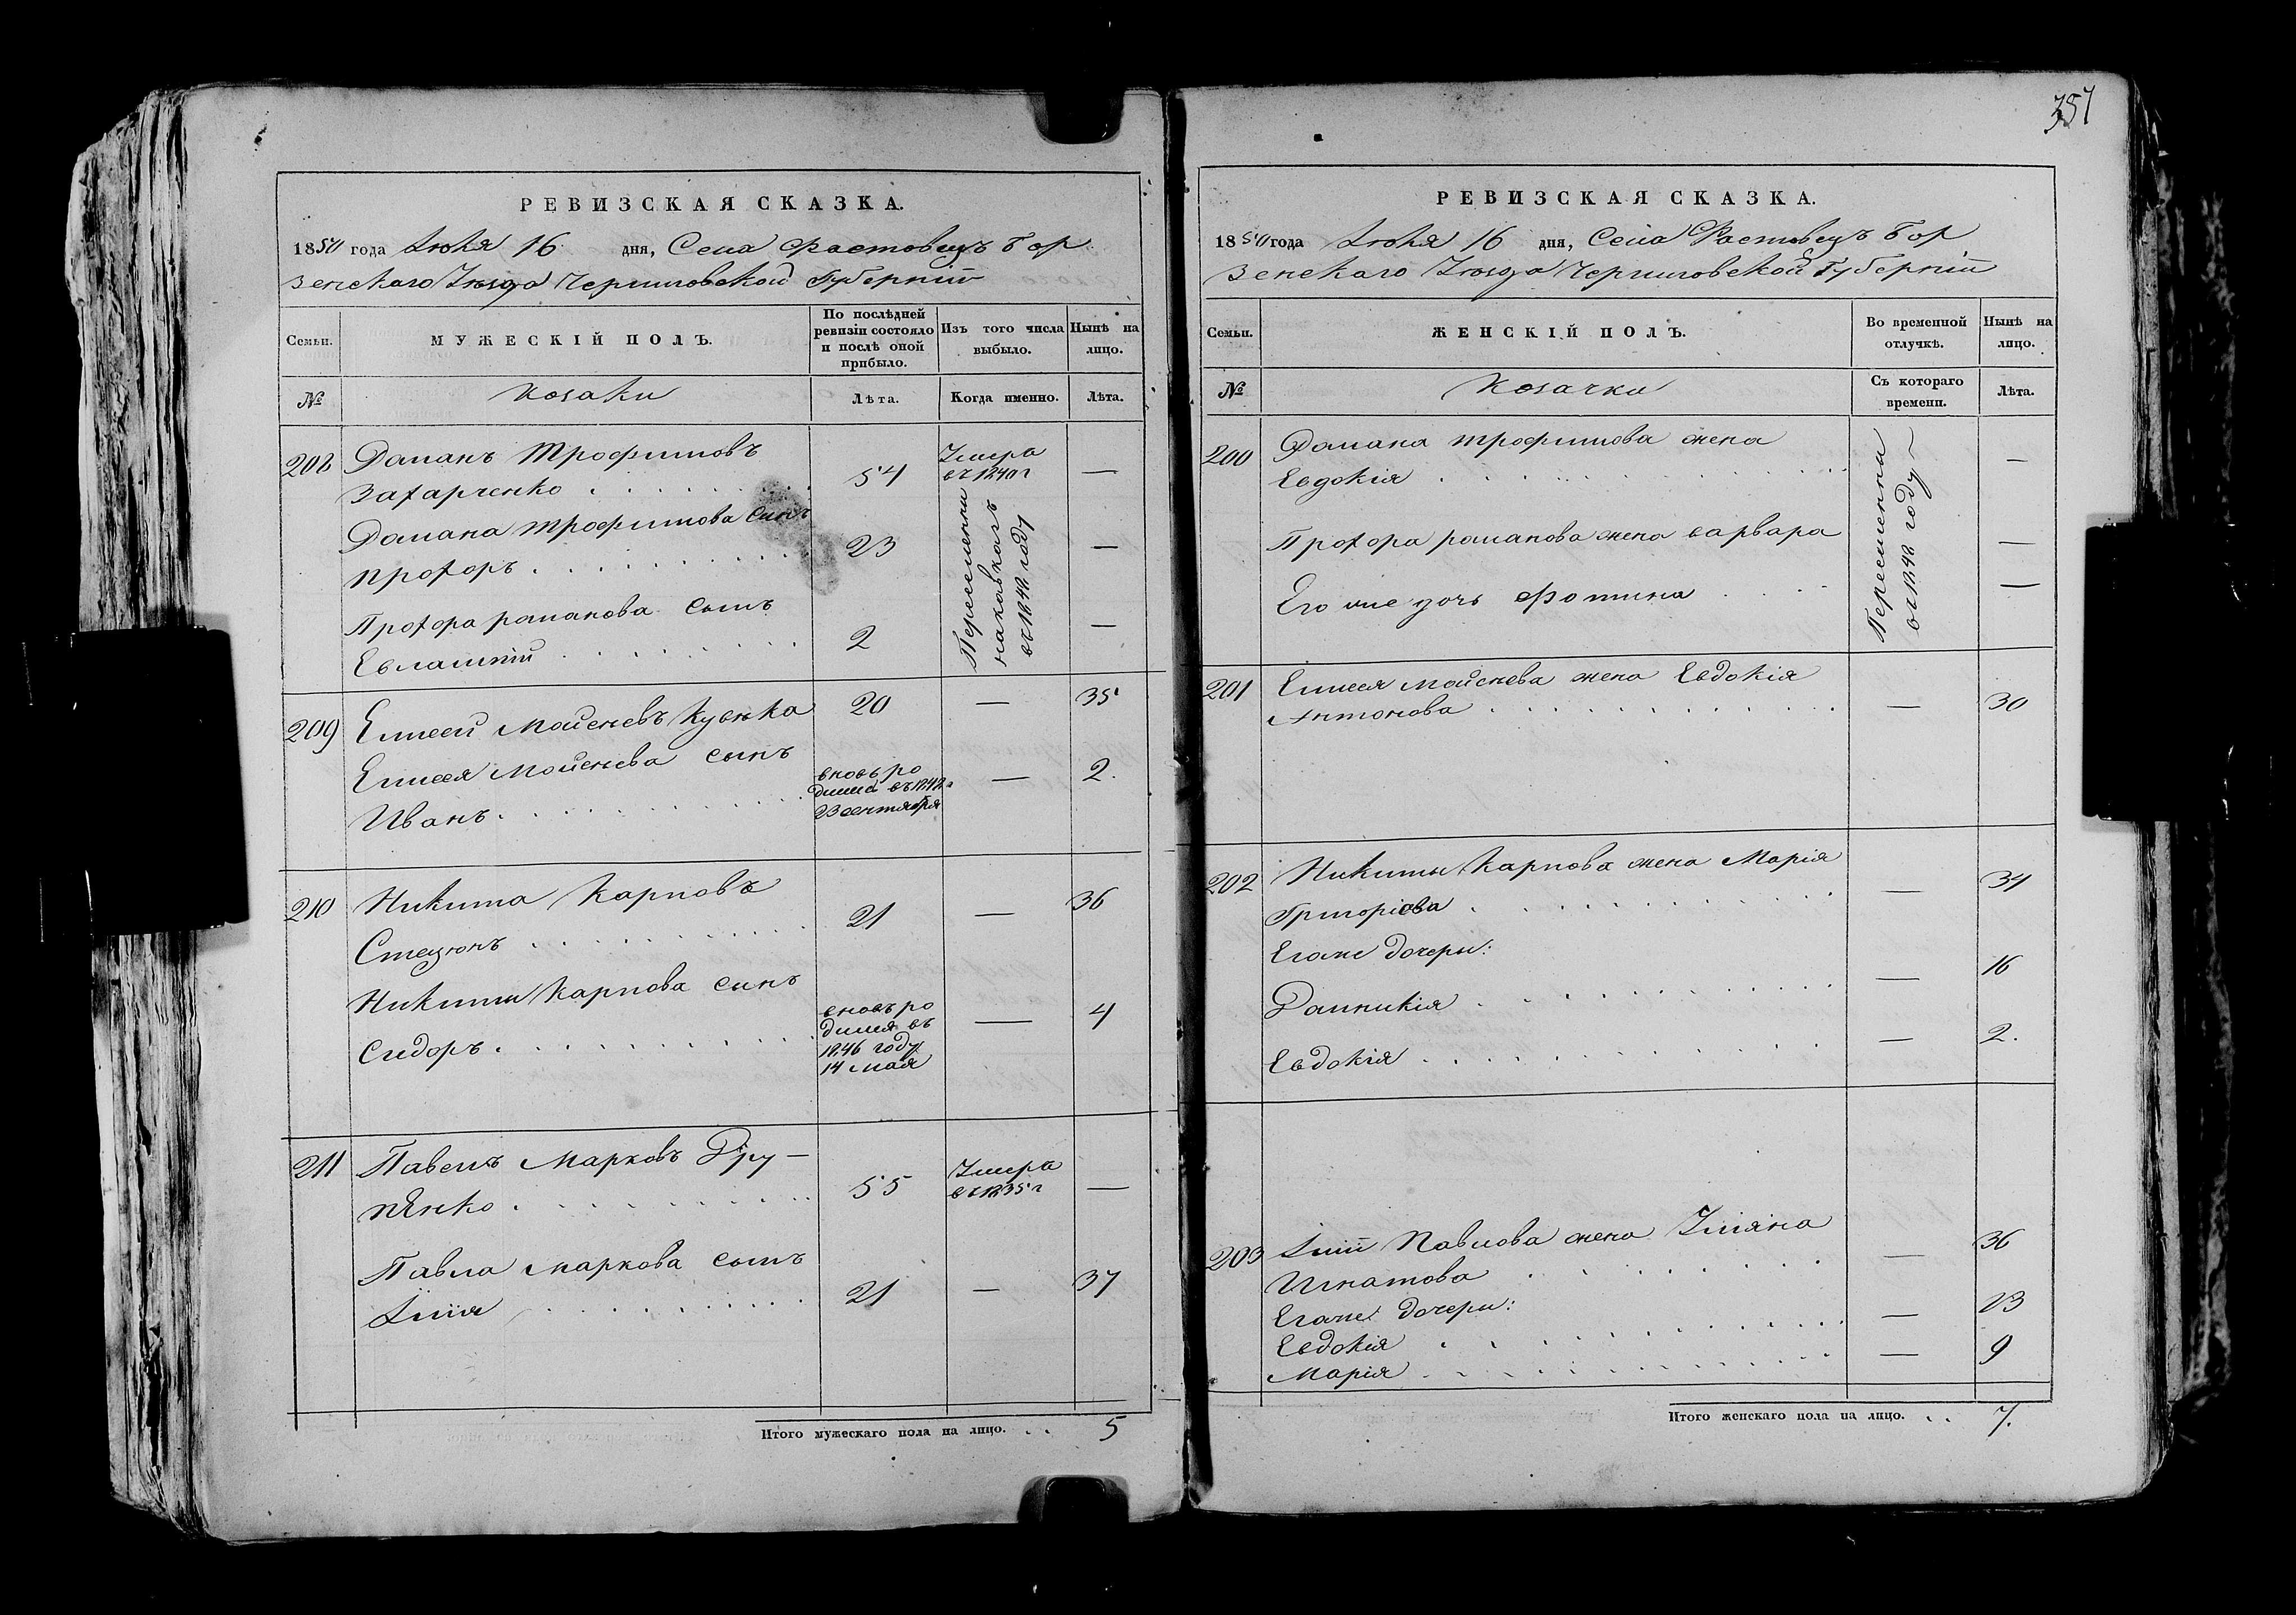 РЕВИЗСКАЯ СКАЗКА.
1850 года Іюля 16 дня, Села Фастовецъ Бор
зенскаго Уѣзда Черниговской Губерніи
Семьи.
МУЖЕСКІЙ ПОЛЪ.
По послѣдней ревизіи состояло и послѣ оной прибыло.
Изъ того числа выбыло.
Нынѣ на лицо.
№
Козаки
Лѣта.
Когда именно.
Лѣта.
208 Романъ Трофимовъ
Захарченко 54 Умеръ въ 1840 г —
Романа Трофимова сынъ
Прохоръ 23 —
Прохора романова сынъ
Евлампій 2 —
Переселенны
на кавказъ
въ 1848 году
209 Елисей Мойсѣевъ 20 — 35
Елисея Мойсѣева сынъ
Иванъ вновь ро
дился въ 1848
сентября — 2.
210 Никита Карповъ
Стецюнъ 21 — 36
Никиты Карпова сынъ
Сидоръ вновь ро
дился въ
1846 году
14 мая — 4
211 Павелъ Марковъ
55 Умеръ въ 1835 г —
Павла Маркова сынъ
Илія 21 — 37
Итого мужескаго пола на лицо. . . 5
357
РЕВИЗСКАЯ СКАЗКА.
1850 года Іюля 16 дня, Села Фастовецъ Бор
зенскаго Уѣзда Черниговской Губерніи
Семьи.
ЖЕНСКІЙ ПОЛЪ.
Во временной отлучкѣ.
Нынѣ на лицо.
№
Козачки
Съ котораго времени.
Лѣта.
200 Романа трофимова жена
Евдокія —
Прохора романова жена варвара —
Его же дочь Фотина —
Переселенны
въ 1848 году
201 Елисея Мойсѣева жена Евдокія
Антонова — 30
202 Никиты Карпова жена Марія
Григоріева — 34
Егоже дочери:
— 16
Евдокія — 2.
203 Иліи Павлова жена Уліяна
Игнатова — 36
Егоже дочери:
Евдокія — 13
Марія — 9
Итого женскаго пола на лицо. . . 7.